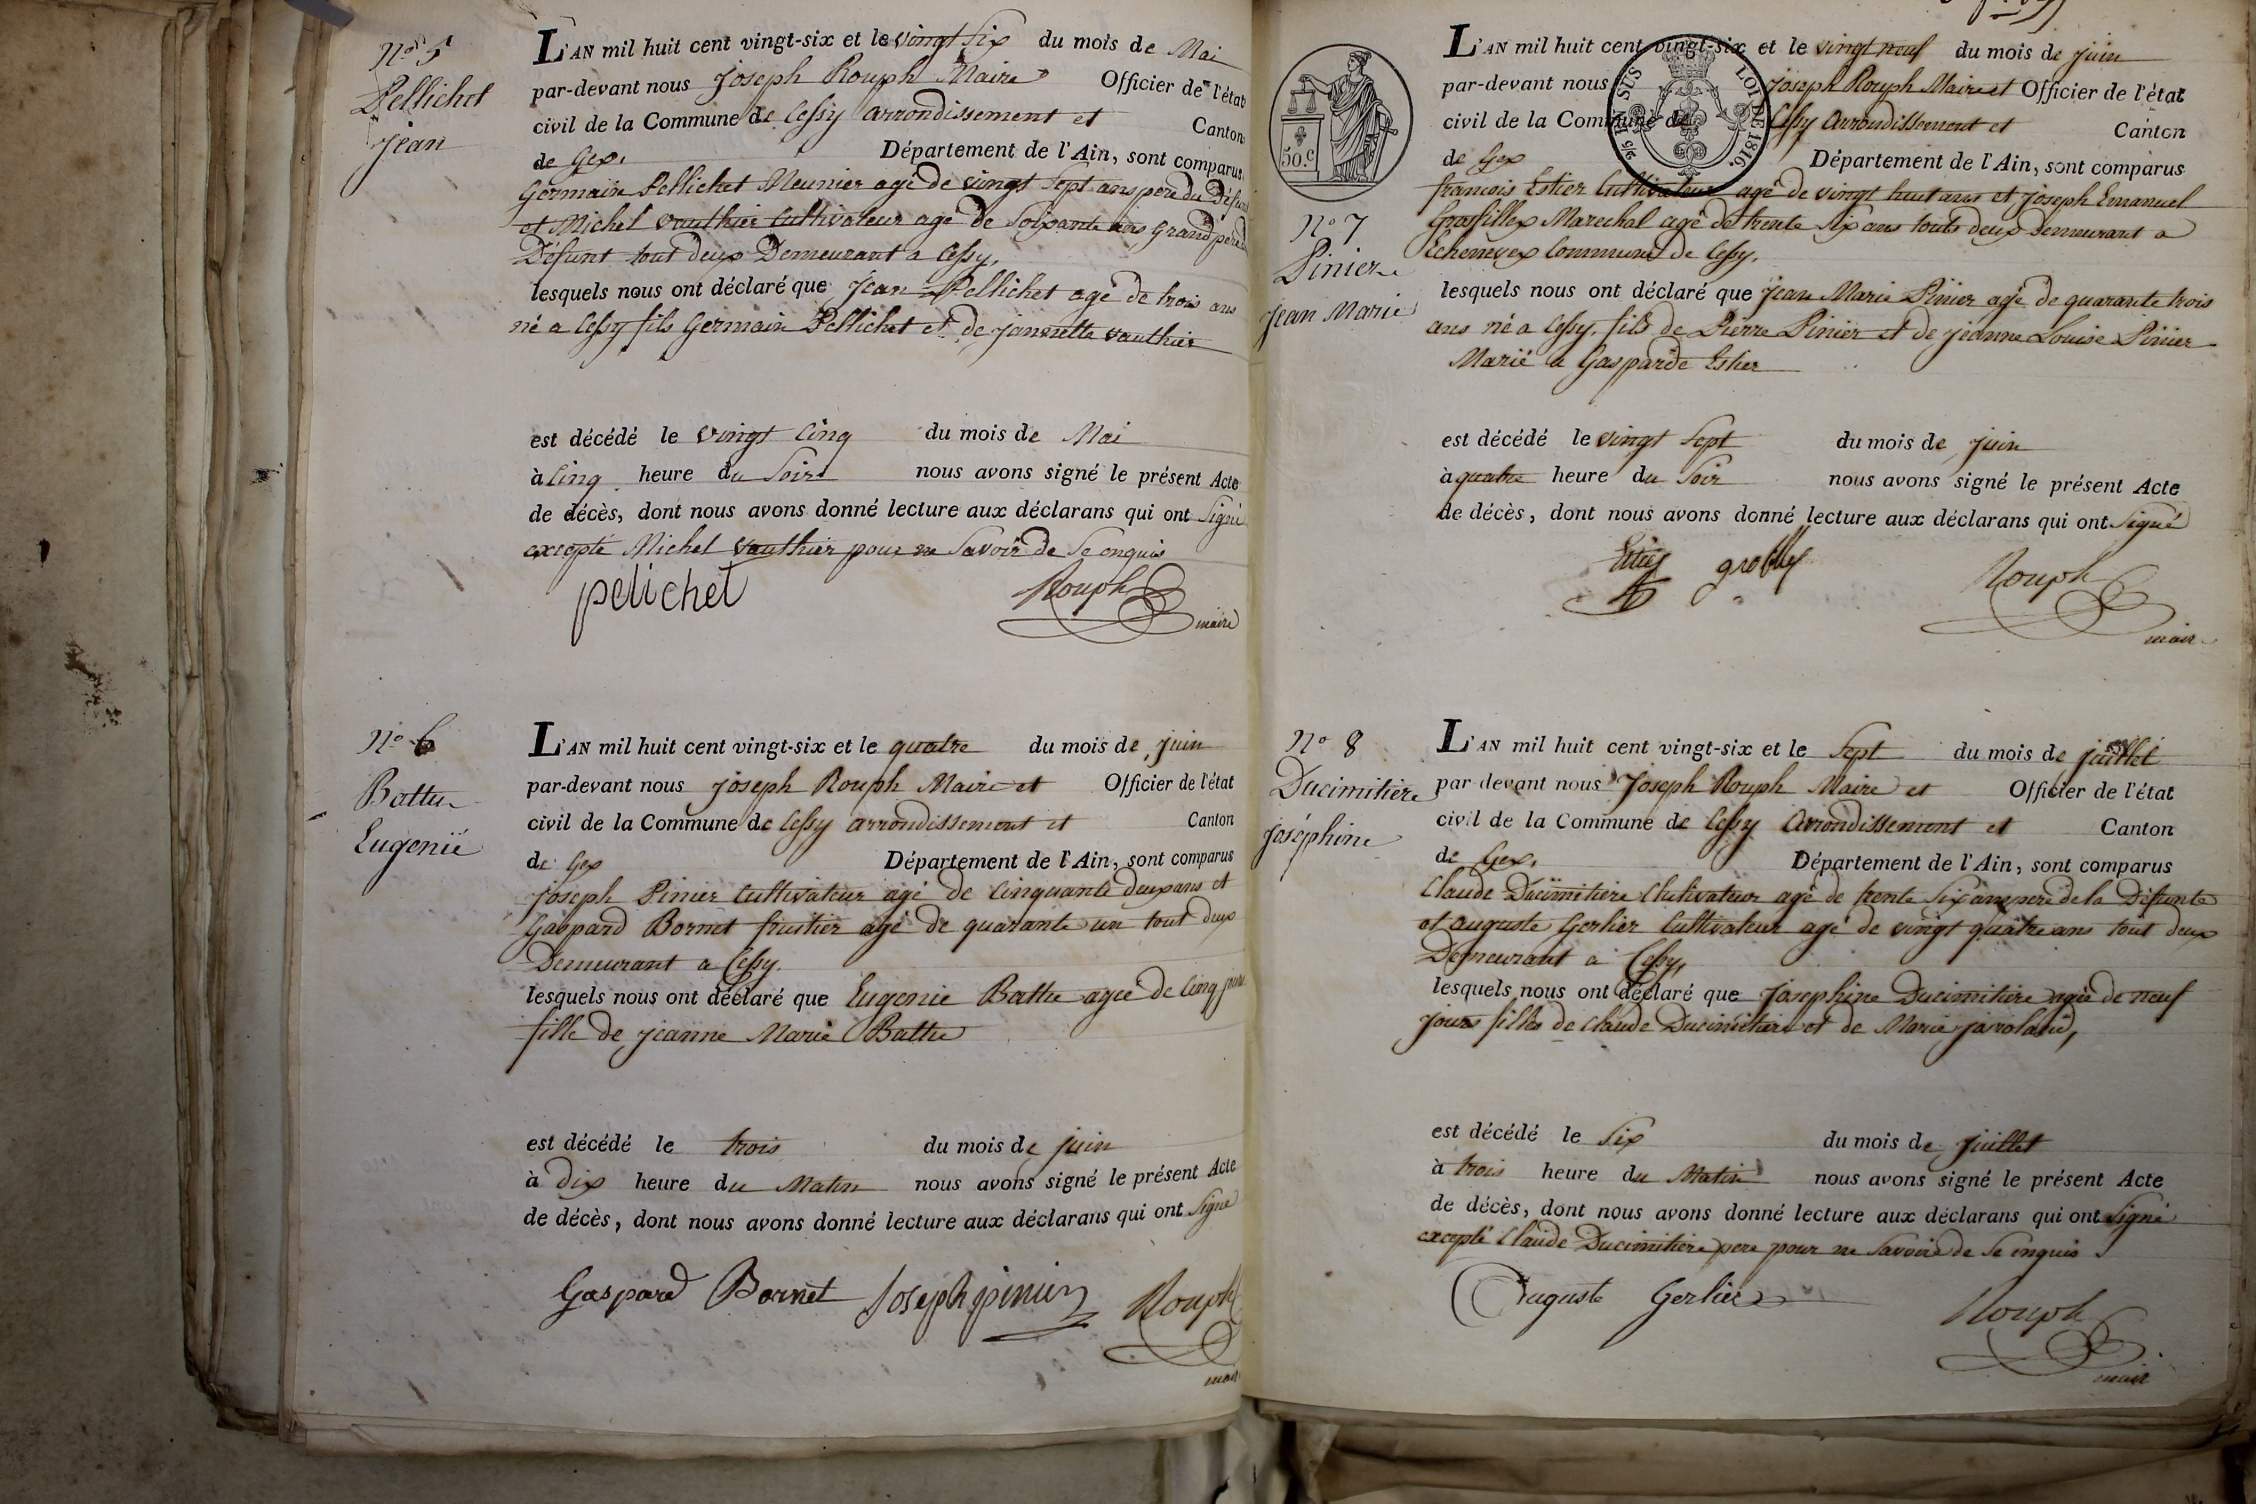 N.o 5
Pellichet
Jean
L'AN mil huit cent vingt-six et le vingt six du mois de Mai
par-devant nous Joseph Rouph Maire Officier de l'état
civil de la Commune de Cessy arrondissement et Canton
de Gex. Département de l'Ain, sont comparus
Germain Pellichet Meunier agé de vingt sept ans pere du Défunt
et Michel Vauthier Cultivateur agé de Soixante ans grand pere du
Défunt tout deux Demeurant a Cessy.
lesquels nous ont déclaré que Jean Pellichet agé de trois ans
né a Cessy fils Germain Pellichet et de jannette Vauthier
est décédé le vingt Cinq du mois de Mai
à Cinq heure du Soir nous avons signé le présent Acte
de décès, dont nous avons donné lecture aux déclarans qui ont Signé
excepté Michel Vauthier pour ne Savoir de Se enquis
pelichet Rouph
maire
N.o 6
Battu
Eugenie
L'AN mil huit cent vingt-six et le quatre du mois de juin
par-devant nous joseph Rouph Maire et Officier de l'état
civil de la Commune de Cessy arrondissement et Canton
de Gex Département de l'Ain, sont comparus
joseph Pinier Cultivateur agé de Cinquante deux ans et
Gaspard Bornet fruitier agé de quarante un tout deux
Demeurant a Cessy.
lesquels nous ont déclaré que Eugenie Battu agée de Cinq jours
fille de jeanne Marie Battu
est décédé le trois du mois de juin
à dix heure du Matin nous avons signé le présent Acte
de décès, dont nous avons donné lecture aux déclarans qui ont Signé
Gaspard Bornet Joseph pinier Rouph
maire
50.c
2/5 EN SUS LOI DE 1816.
N.o 7
Pinier
Jean Marie
L'AN mil huit cent vingt-six et le vingt neuf du mois de juin
par-devant nous joseph Rouph Maire et Officier de l'état
civil de la Commune de Cessy Arrondissement et Canton
de Gex Département de l'Ain, sont comparus
francois Estier Cultivateur agé de vingt huit ans et joseph Emanuel
Grosfillex Marechal agé de trente six ans touts deux Demeurant a
Echenevex Commune de Cessy.
lesquels nous ont déclaré que jean Marie Pinier agé de quarante trois
ans né a Cessy, fils de Pierre Pinier et de jeanne Louise Pinier
Marié a Gasparde Estier
est décédé le vingt Sept du mois de juin
à quatre heure du Soir nous avons signé le présent Acte
de décès, dont nous avons donné lecture aux déclarans qui ont Signé
Rouph
mair
N.o 8
Ducimitiere
joséphine
L'AN mil huit cent vingt-six et le Sept du mois de juillet
par devant nous Joseph Rouph Maire et Officier de l'état
civil de la Commune de Cessy Arrondissement et Canton
de Gex. Département de l'Ain, sont comparus
Claude Ducimitiere Clultivateur agé de trente Six ans pere de la Défunte
et auguste Gerlier Cultivateur agé de vingt quatre ans tout deux
Demeurant a Cessy,
lesquels nous ont déclaré que Josephine Ducimitiere agée de neuf
jours filles de claude Ducimitiere et de Marie javoland,
est décédé le Six du mois de juillet
à trois heure du Matin nous avons signé le présent Acte
de décès, dont nous avons donné lecture aux déclarans qui ont Signé
excepté Claude Ducimitiere pere pour ne Savoir de Se enquis
Auguste Gerlier Rouph
mair